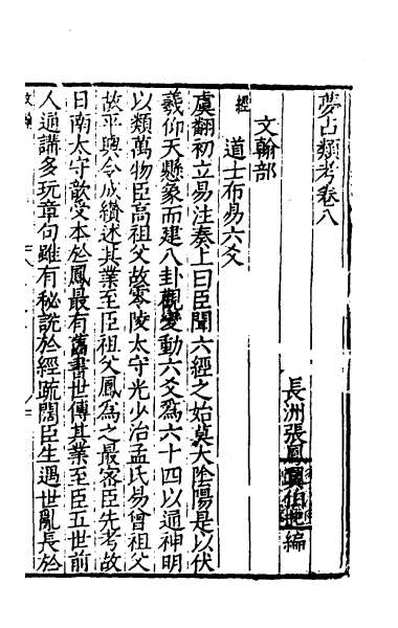 夢占類考卷八
長洲張鳳翼伯起編
文翰部
經
道士布易六爻
虞翻初立易注奏上曰臣聞六經之始莫大陰陽是以伏
羲仰天懸象而建八卦觀變動六爻爲六十四以通神明
以類萬物臣高祖父故零陵太守光少治孟氏易曾祖父
故平輿令成纘述其業至臣祖父鳳為之最密臣先考故
日南太守歆受本於鳳最有舊書世傳其業至臣五世前
人通講多玩章句雖有秘說於經疏闊臣生遇世亂長於